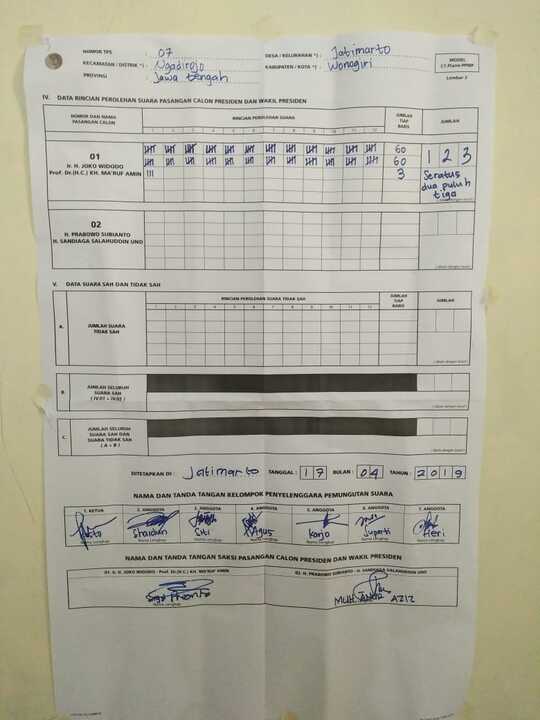 NOMOR TPS : 07
DESA / KELURAHAN *) : Jatimarto
KECAMATAN / DISTRIK *) : Ngadirojo
KABUPATEN / KOTA *) : Wonogiri
PROVINSI : Jawa Tengah
MODEL
C1.Plano-PPWP
Lembar 2
IV. DATA RINCIAN PEROLEHAN SUARA PASANGAN CALON PRESIDEN DAN WAKIL PRESIDEN
NOMOR DAN NAMA PASANGAN CALON
RINCIAN PEROLEHAN SUARA
JUMLAH TIAP BARIS
JUMLAH
1 2 3 4 5 6 7 8 9 10 11 12
01
Ir. H. JOKO WIDODO
Prof. Dr.(H.C.) KH. MA'RUF AMIN
60
60
III 3
1 2 3
Seratus
dua puluh
tiga
02
H. PRABOWO SUBIANTO
H. SANDIAGA SALAHUDDIN UNO
V. DATA SUARA SAH DAN TIDAK SAH
RINCIAN PEROLEHAN SUARA TIDAK SAH
JUMLAH TIAP BARIS
JUMLAH
1 2 3 4 5 6 7 8 9 10 11 12
A. JUMLAH SUARA TIDAK SAH
B. JUMLAH SELURUH SUARA SAH
C. JUMLAH SELURUH SUARA SAH DAN SUARA TIDAK SAH
( A + B )
DITETAPKAN DI : Jatimarto TANGGAL : 17 BULAN : 04 TAHUN : 2019
NAMA DAN TANDA TANGAN KELOMPOK PENYELENGGARA PEMUNGUTAN SUARA
1. KETUA 2. ANGGOTA 3. ANGGOTA 4. ANGGOTA 5. ANGGOTA 6. ANGGOTA 7. ANGGOTA
Siti Agus Karjo Suparti Heri
Nama Lengkap Nama Lengkap Nama Lengkap Nama Lengkap Nama Lengkap Nama Lengkap Nama Lengkap
NAMA DAN TANDA TANGAN SAKSI PASANGAN CALON PRESIDEN DAN WAKIL PRESIDEN
01. Ir. H. JOKO WIDODO - Prof. Dr.(H.C.) KH. MA'RUF AMIN
02. H. PRABOWO SUBIANTO - H. SANDIAGA SALAHUDDIN UNO
MUH. AZIZ
Nama Lengkap